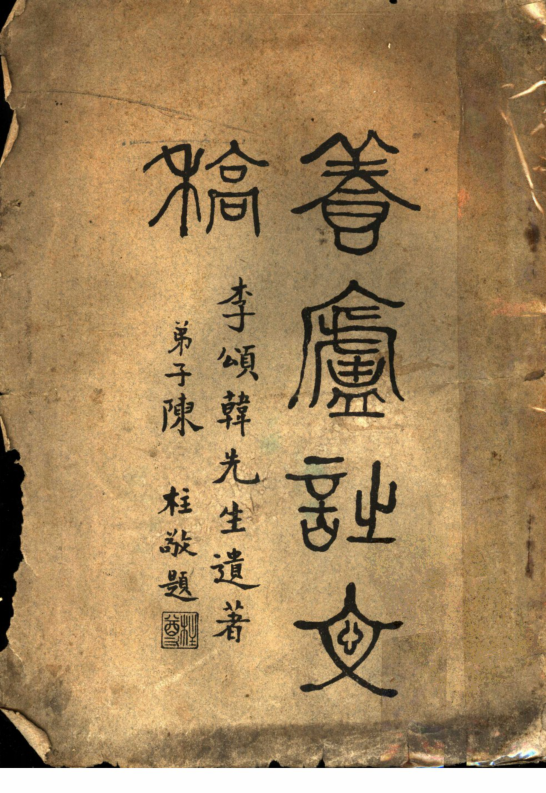 養廬詩文
稿
李頌韓先生遺著
弟子陳柱敬題
柱尊